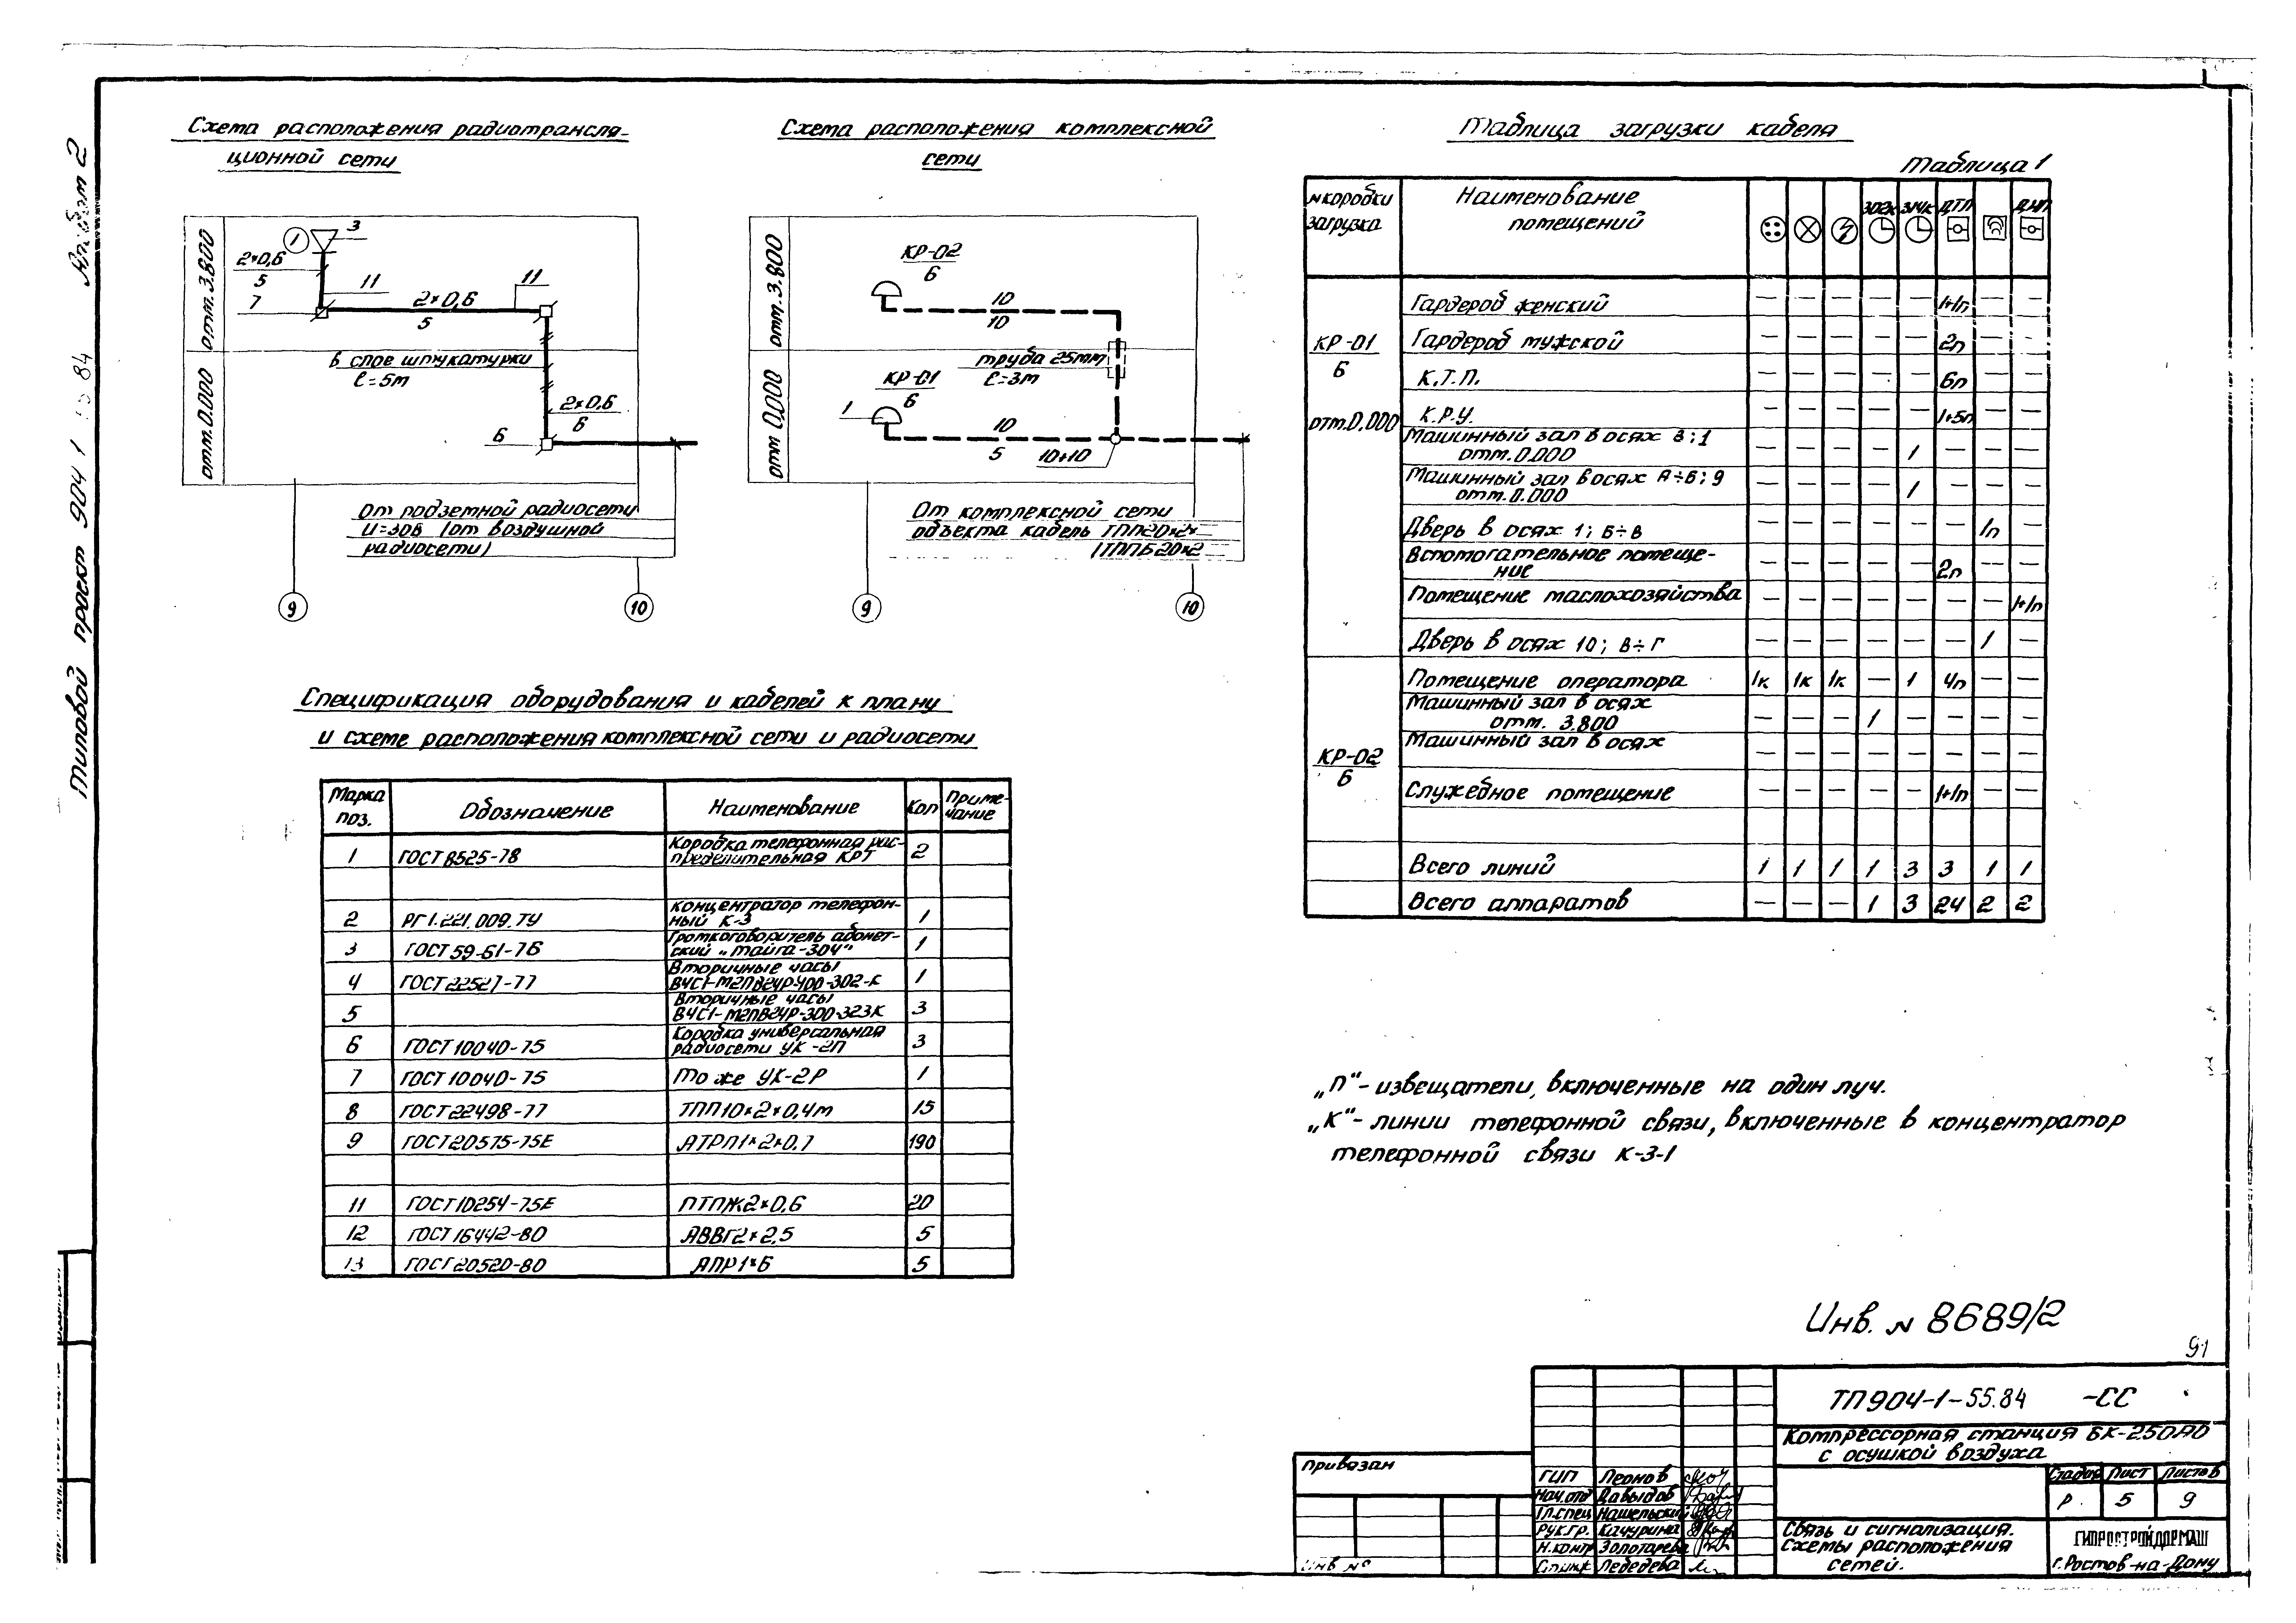 Типовой проект 904 1 55 84 Альбом 2
Схема расположения радиотрансля-
ционной сети
отм. 3.800
отм. 0.000
1
3
2×0,6
5
7
11
2×0,6
5
11
в слое штукатурки
ℓ=5м
2×0,6
6
6
От подземной радиосети
U=30В (от воздушной
радиосети)
9
10
Схема расположения комплексной
сети
отм. 3.800
отм 0.000
КР-02
6
10
10
труба 25мм
ℓ=3м
КР-01
6
1
10
5
10+10
От комплексной сети
объекта кабель ТПП20×2×
(ТППБ20×2
9
10
Таблица загрузки кабеля
Таблица 1
N коробки загрузка | Наименование помещений | 302к | 314к | ДТЛ | ДИП
КР-01
6
отм. 0.000
Гардероб женский — — — — — 1+1п — —
Гардероб мужской — — — — — 2п — —
К.Т.П. — — — — — 6п — —
К.Р.У. — — — — — 1+5п — —
Машинный зал в осях В;1
отм. 0.000 — — — — 1 — — —
Машинный зал в осях А÷Б; 9
отм. 0.000 — — — — 1 — — —
Дверь в осях 1; Б÷В — — — — — — 1п —
Вспомогательное помеще-
ние — — — — — 2п — —
Помещение маслохозяйства — — — — — — — 1+1п
Дверь в осях 10; В÷Г — — — — — — 1 —
КР-02
6
Помещение оператора 1к 1к 1к — 1 4п — —
Машинный зал в осях
отм. 3.800 — — — 1 — — — —
Машинный зал в осях — — — — — — — —
Служебное помещение — — — — — 1+1п — —
Всего линий 1 1 1 1 3 3 1 1
Всего аппаратов — — — 1 3 24 2 2
Спецификация оборудования и кабелей к плану
и схеме расположения комплексной сети и радиосети
Марка поз. | Обозначение | Наименование | Кол | Приме-чание
1 ГОСТ 8525-78 Коробка телефонная рас-
пределительная КРТ 2
2 РГ1.221.009.ТУ Концентратор телефон-
ный К-3 1
3 ГОСТ 59-61-76 Громкоговоритель абонет-
ский „Тайга-304" 1
4 ГОСТ 22527-77 Вторичные часы
ВЧС1-М2ПВ24Р400-302-К 1
5 Вторичные часы
ВЧС1-М2ПВ24Р-300-323К 3
6 ГОСТ 10040-75 Коробка универсальная
радиосети УК-2П 3
7 ГОСТ 10040-75 То же УК-2Р 1
8 ГОСТ 22498-77 ТПП10×2×0,4м 15
9 ГОСТ 20575-75Е АТРП1×2×0,7 190
11 ГОСТ 10254-75Е ПТПЖ2×0,6 20
12 ГОСТ 16442-80 АВВГ2×2,5 5
13 ГОСТ 20520-80 АПР1×6 5
„П"- извещатели, включенные на один луч.
„К"- линии телефонной связи, включенные в концентратор
телефонной связи К-3-1
Инв. N 8689/2
91
ТП 904-1-55.84 -СС
Компрессорная станция БК-250А0
с осушкой воздуха
Стадия Лист Листов
Р. 5 9
Связь и сигнализация.
Схемы расположения
сетей.
ГИПРОСТРОЙДОРМАШ
г. Ростов-на-Дону
Привязан
Инв №
ГИП Леонов
Нач. отд Давыдов
Гл. спец Нашельский
Рук. гр. Качурина
Н. контр Золотарева
Ст. инж Лебедева